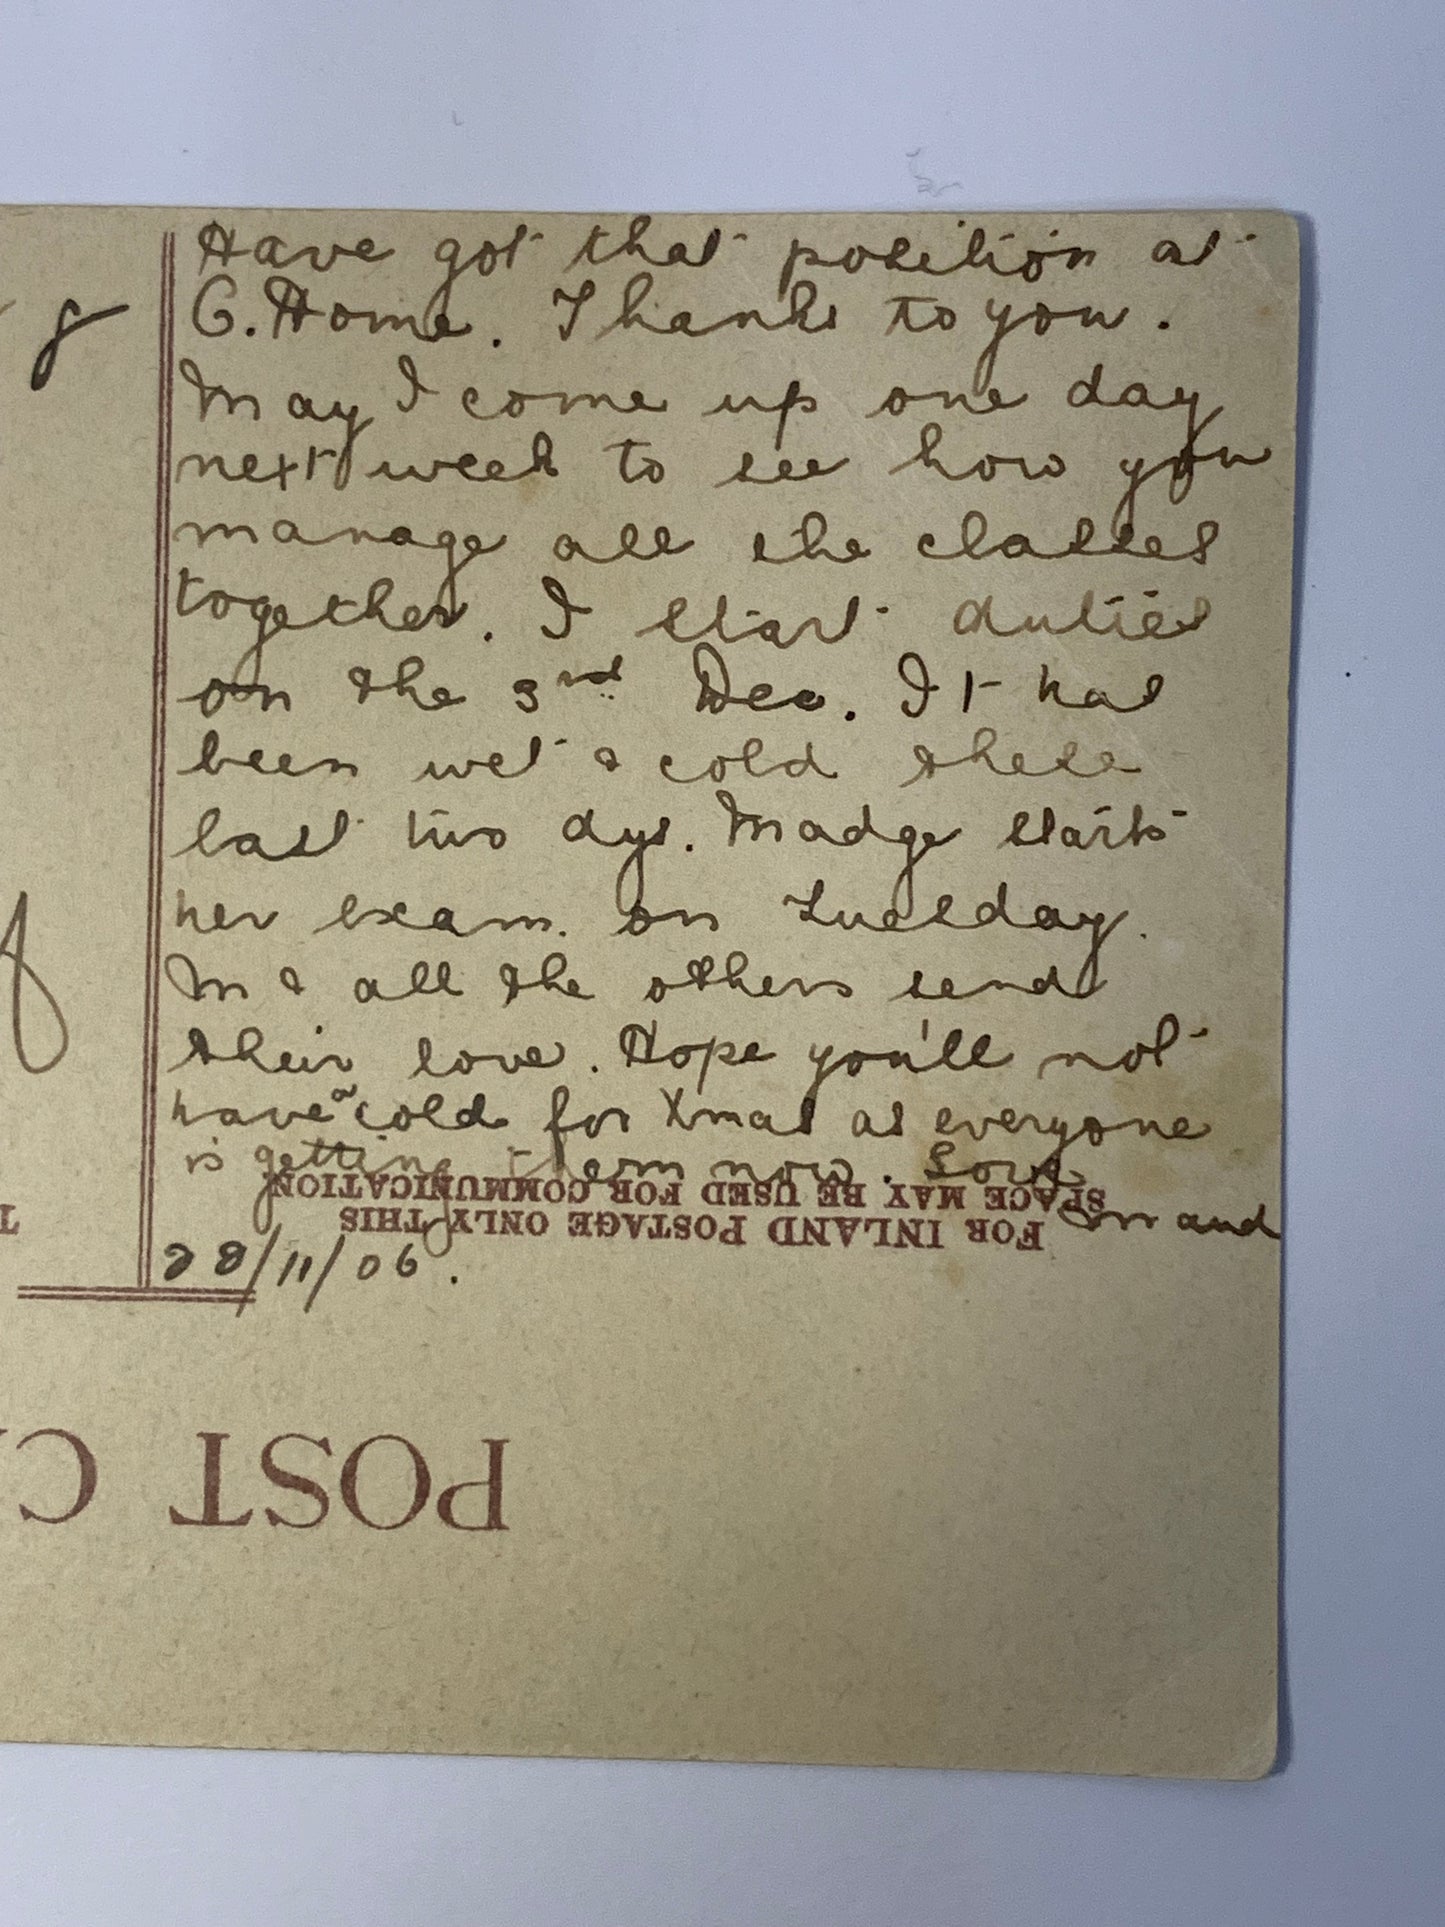 Have got that position at
C. Home. Thanks to you.
May I come up one day
next week to see how you
manage all the classes
together. I start duties
on the 3rd Dec. It has
been wet & cold these
last two dys. Madge starts
her exam. on Tuesday.
M & all the others send
their love. Hope you'll not
have a cold for Xmas as everyone
is getting them now. Love
SPACE MAY BE USED FOR COMMUNICATION
FOR INLAND POSTAGE ONLY THIS
28/11/06.
POST